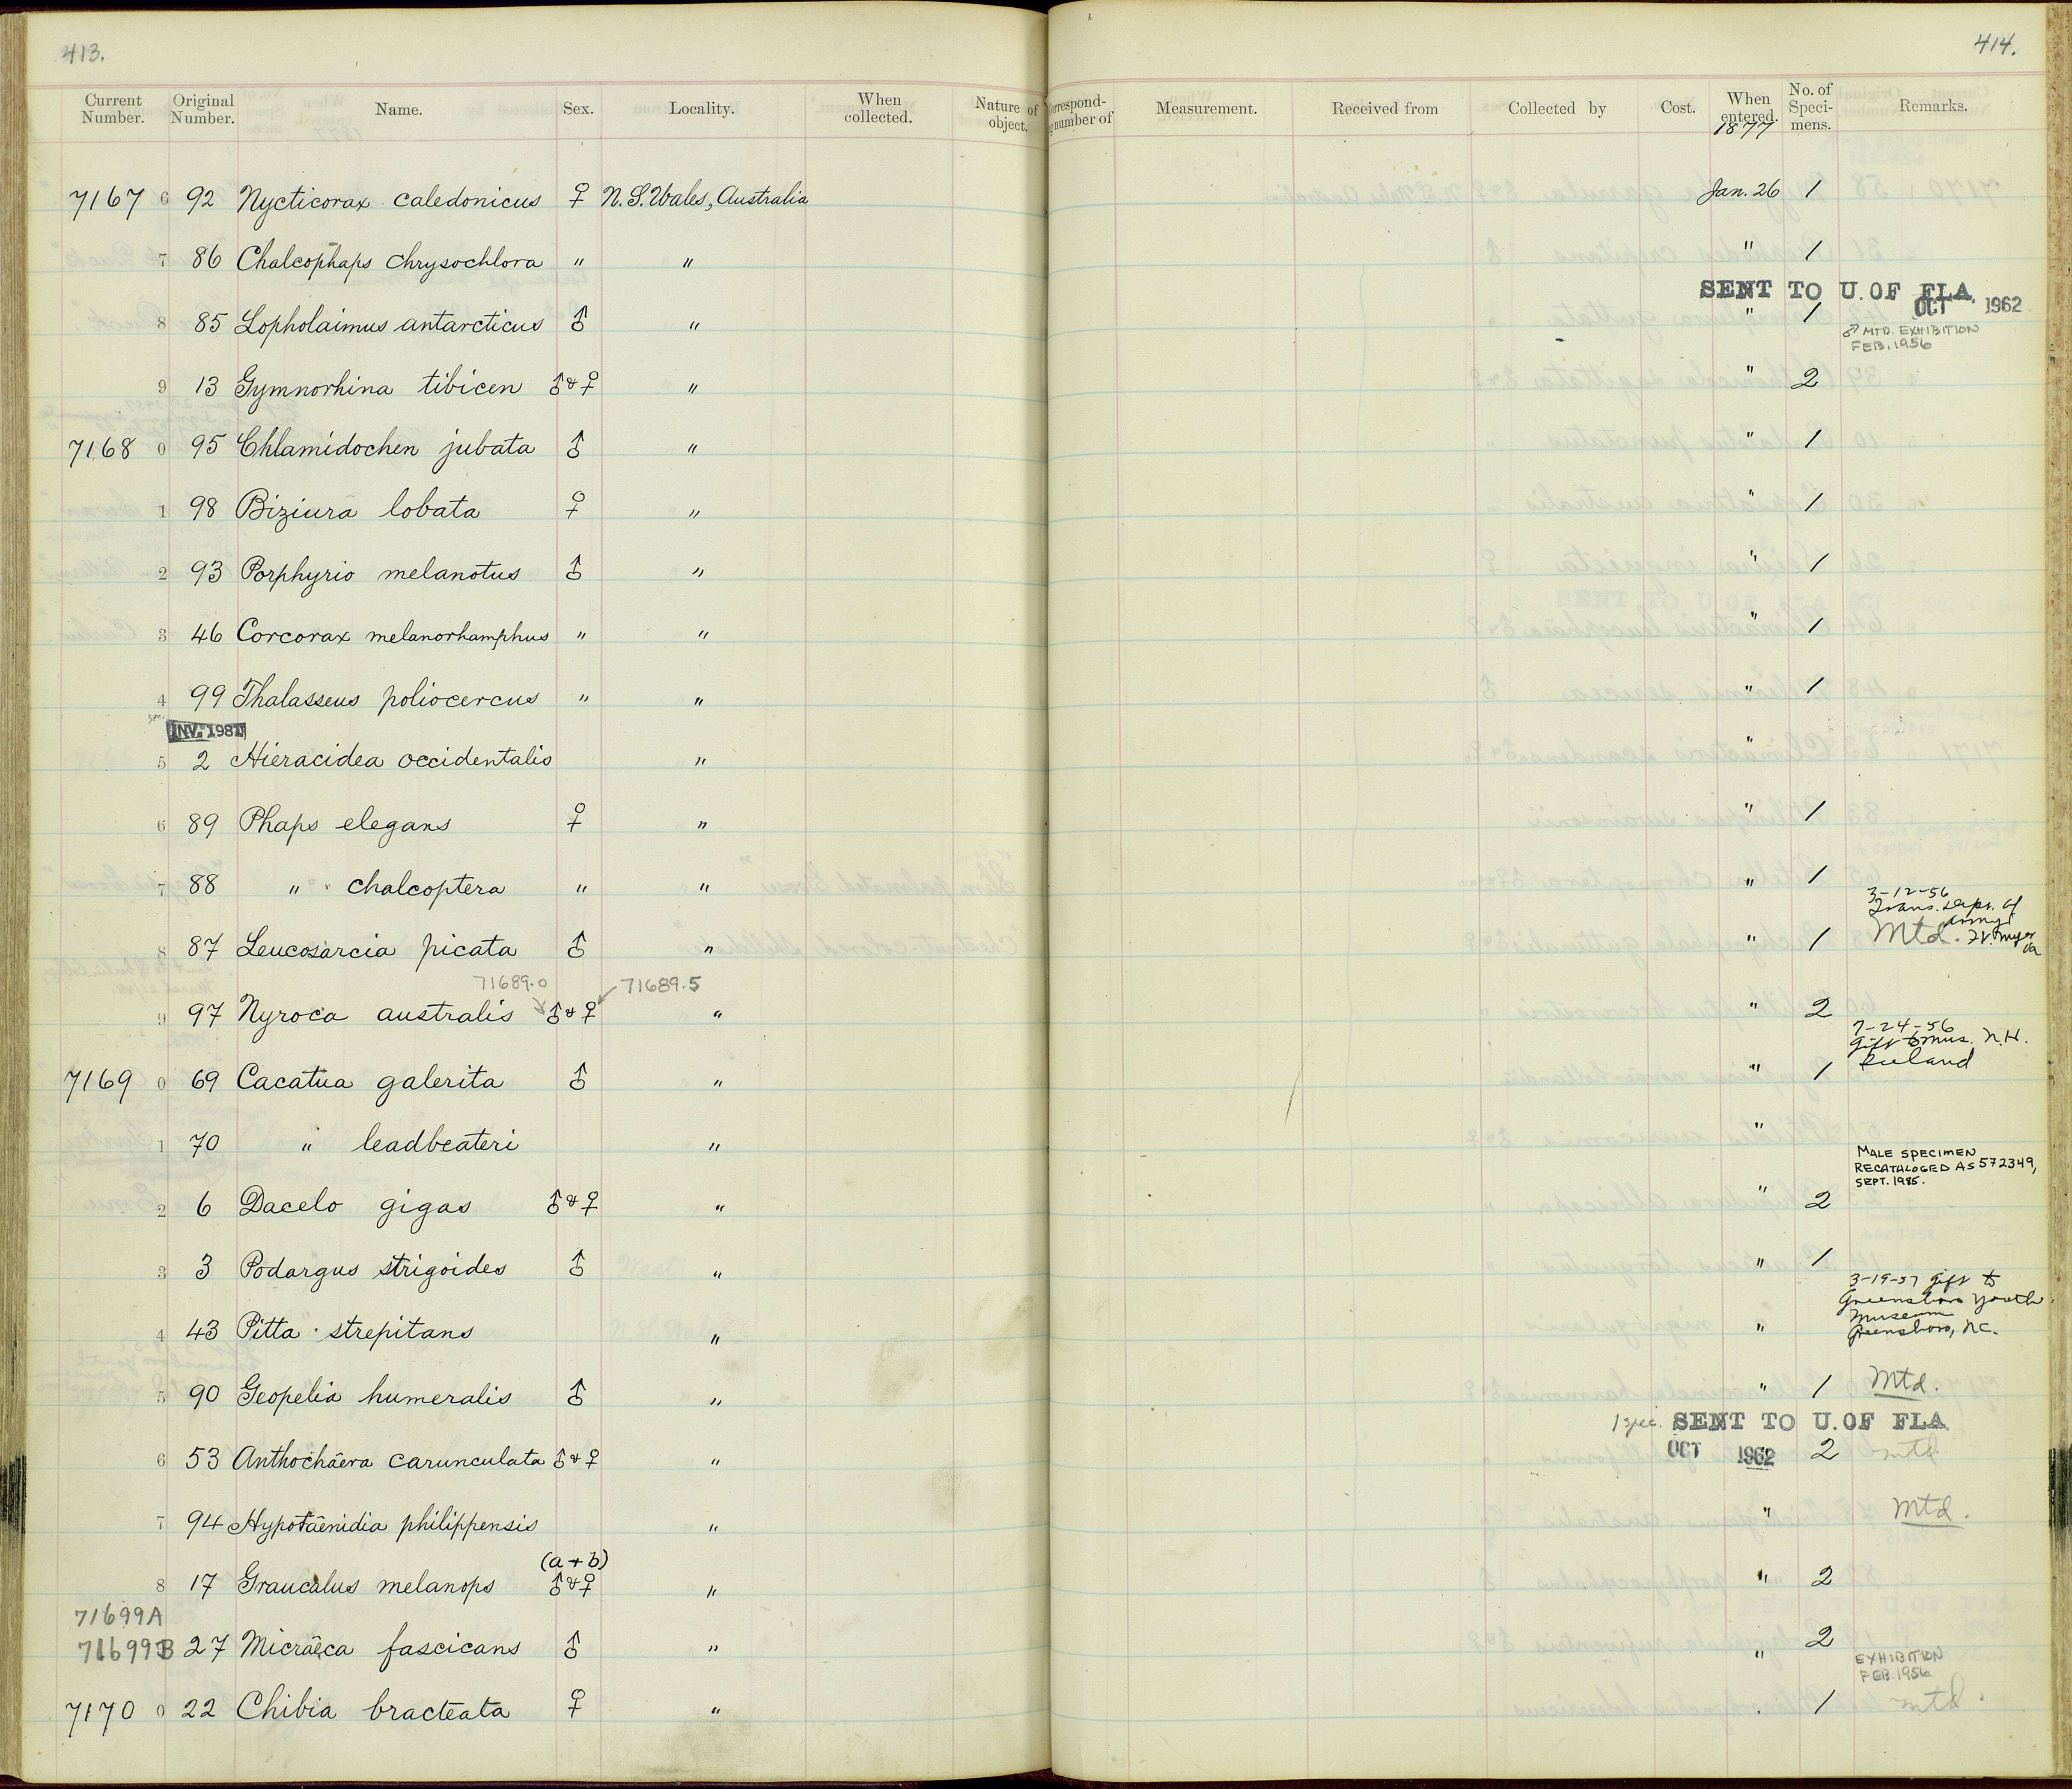 413.
414.
Current Number. Original Number. Name. Sex. Locality. When collected. Nature of object. Correspond- number of Measurement. Received from Collected by Cost. When entered. No. of Speci- mens. Remarks.
1877
7167 6 92 Nycticorax caledonicus ♀ N. S. Wales, Australia Jan. 26 1
7 86 Chalcophaps chrysochlora " " " 1
SENT TO U. OF FLA. OCT 1962
8 85 Lopholaimus antarcticus ♂ " " 1
♂ MTD. EXHIBITION
FEB. 1956
9 13 Gymnorhina tibicen ♂ & ♀ " " 2
7168 0 95 Chlamidochen jubata ♂ " " 1
1 98 Biziura lobata ♀ " " 1
2 93 Porphyrio melanotus ♂ " " 1
3 46 Corcorax melanorhamphus " " " 1
4 99 Thalasseus poliocercus " " " 1
INV. 1981
5 2 Hieracidea occidentalis " "
6 89 Phaps elegans ♀ " " 1
7 88 " chalcoptera " " " 1
3-12-56
Trans. Dept. of
Army
8 87 Leucosarcia picata ♂ " " 1 Mtd. Ft. Myer
Va
71689.0 71689.5
9 97 Nyroca australis ♂ & ♀ " " 2
7-24-56
Gift to Mus. N.H.
Iceland
7169 0 69 Cacatua galerita ♂ " " 1
1 70 " leadbeateri " "
MALE SPECIMEN
RECATALOGED AS 572349,
SEPT. 1985.
2 6 Dacelo gigas ♂ & ♀ " " 2
3 3 Podargus strigoides ♂ " " 1
3-19-57 gift to
Greensboro Youth
Museum
Greensboro, N.C.
4 43 Pitta strepitans " "
5 90 Geopelia humeralis ♂ " " 1 Mtd.
1 spec. SENT TO U. OF FLA
OCT 1962
6 53 Anthochaera carunculata ♂ & ♀ " 2 mtd
7 94 Hypotaenidia philippensis " " Mtd.
(a + b)
8 17 Graucalus melanops ♂ & ♀ " " 2
71699A
71699B 27 Micraeca fascicans ♂ " " 2
EXHIBITION
FEB. 1956
7170 0 22 Chibia bracteata ♀ " 1 mtd.